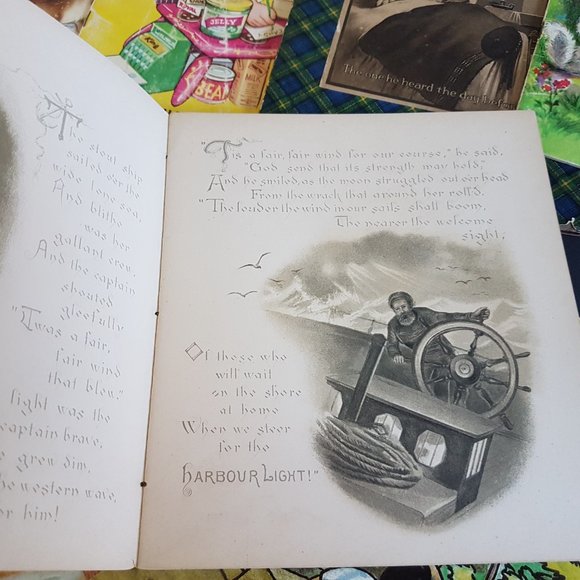 JELLY
BEAN
The one he heard the day before
The stout ship
sailed o'er the
wide lone sea,
And blithe
was her
gallant crew,
And the captain
shouted
gleefully
"'Twas a fair,
fair wind
that blew."
light was the
captain brave,
grew dim,
the western wave,
him!
"'Tis a fair, fair wind for our course," he said,
"God send that its strength may hold,"
And he smiled, as the moon struggled out o'er head
From the wrack that around her roll'd.
"The louder the wind in our sails shall boom,
The nearer the welcome
sight,
Of those who
will wait
on the shore
at home
When we steer
for the
HARBOUR LIGHT!"